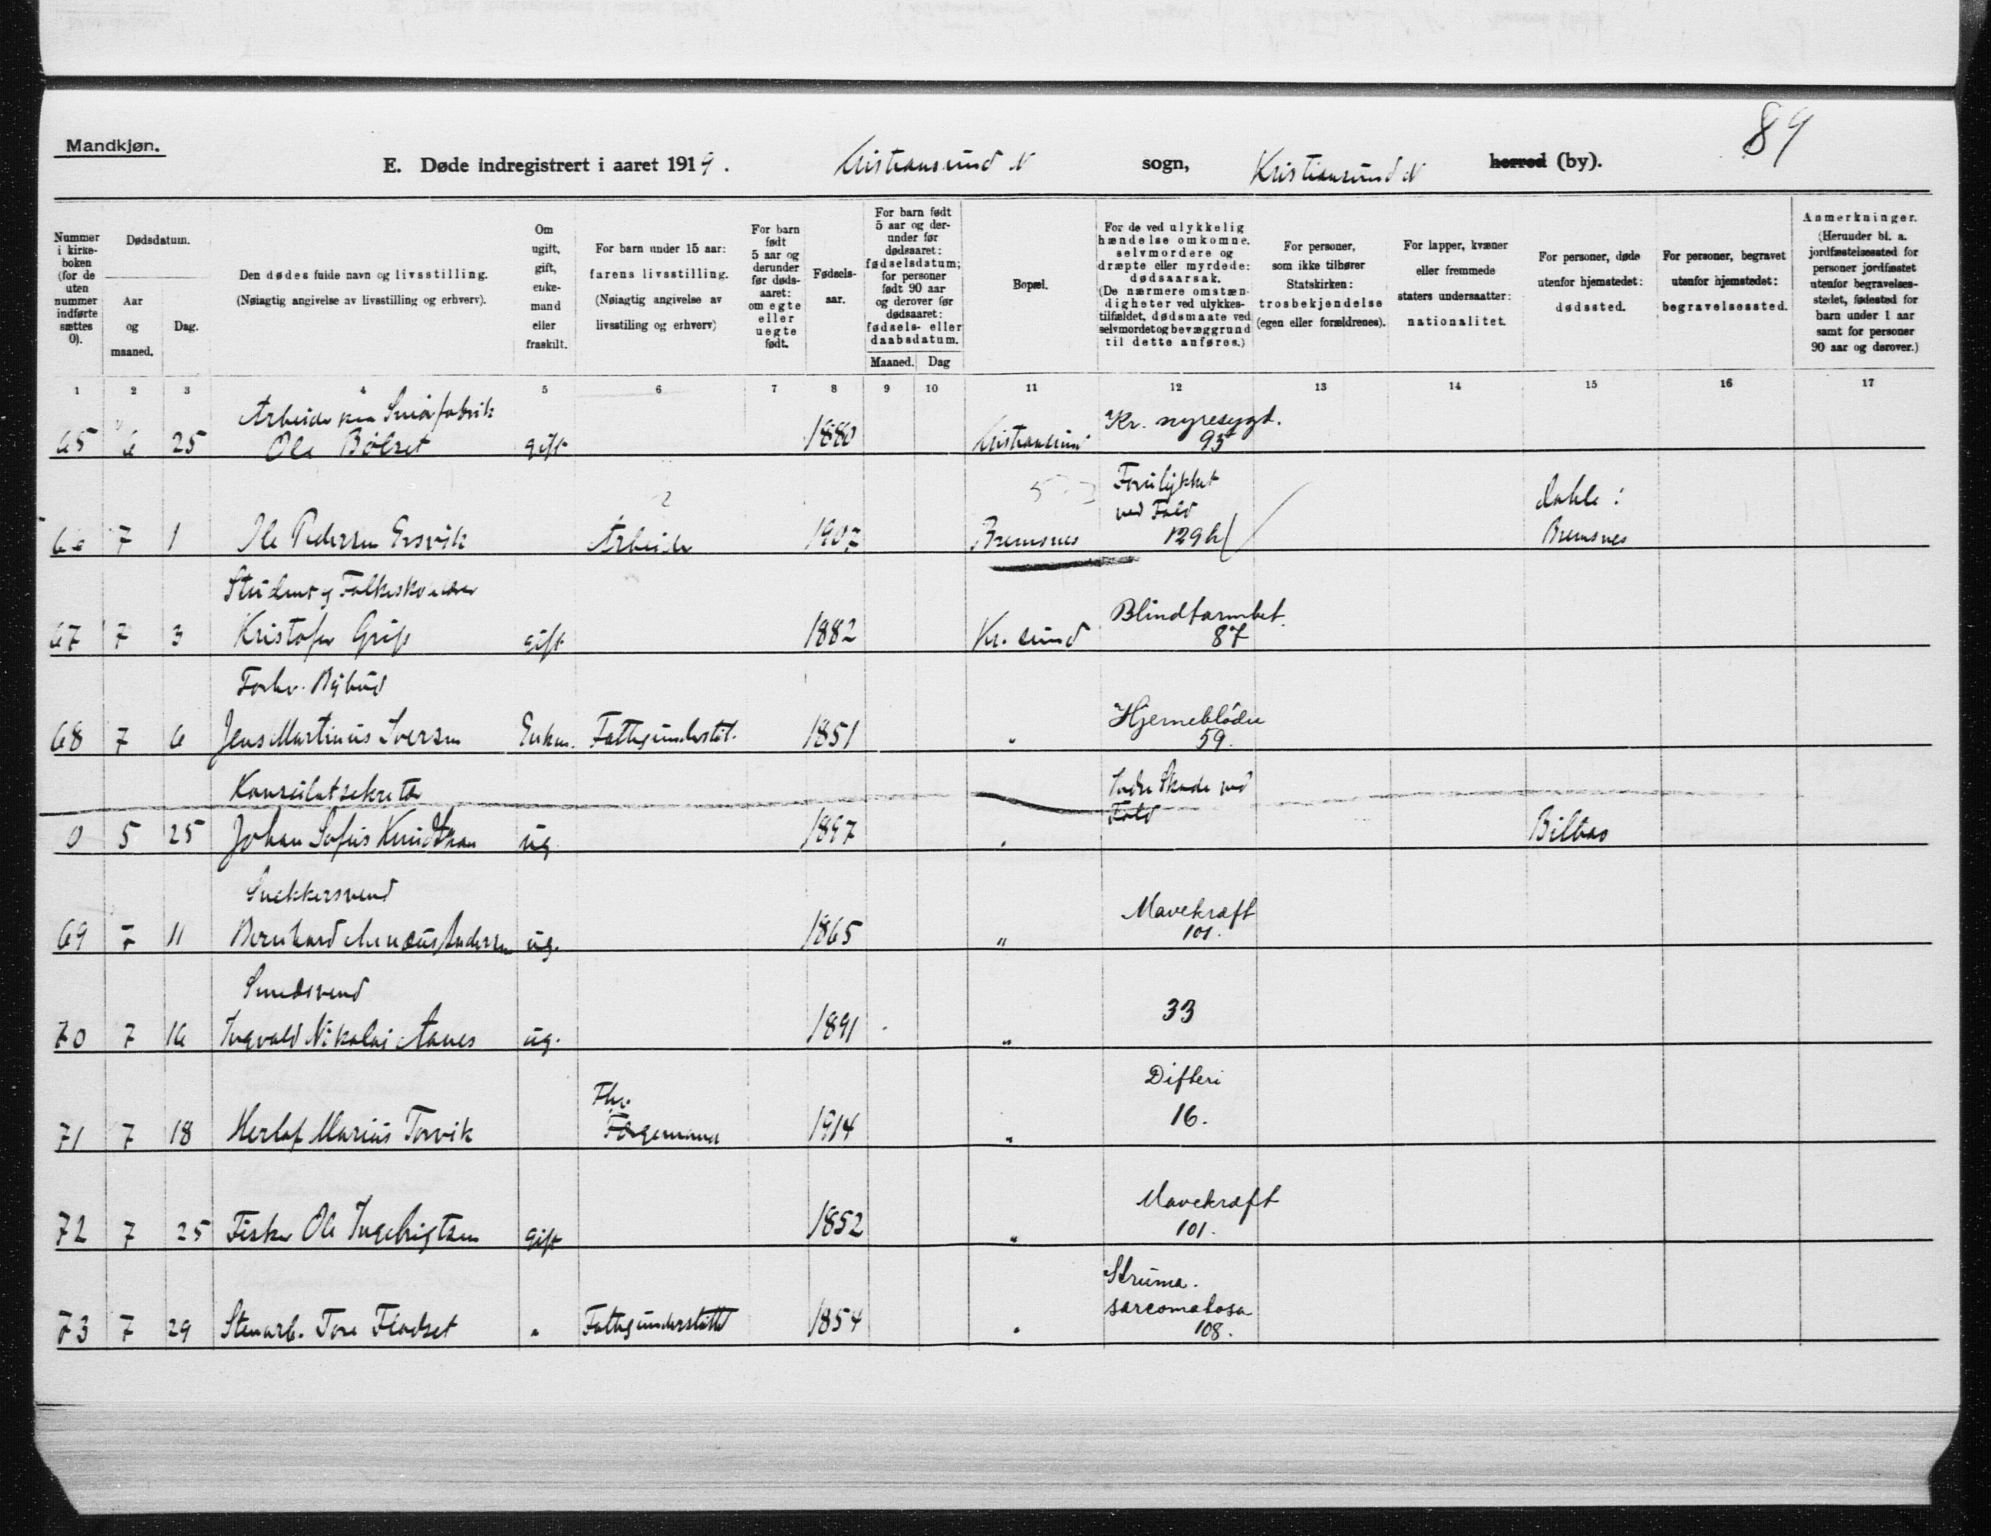 89
Mandkjøn.
E. Døde indregistrert i aaret 1919. Kristiansund N sogn, Kristiansund N herred (by).
Nummer i kirkeboken (for de uten nummer indførte sættes 0).
Dødsdatum.
Aar og maaned.
Dag.
Den dødes fulde navn og livsstilling.
(Nøiagtig angivelse av livsstilling og erhverv).
Om ugift, gift, enkemand eller fraskilt.
For barn under 15 aar: farens livsstilling.
(Nøiagtig angivelse av livsstiling og erhverv)
For barn født 5 aar og derunder før dødsaaret: om egte eller uegte født.
Fødselsaar.
For barn født 5 aar og derunder før dødsaaret: fødselsdatum; for personer født 90 aar og derover før dødsaaret: fødsels- eller daabsdatum.
Maaned.
Dag
Bopæl.
For de ved ulykkelig hændelse omkomne, selvmordere og dræpte eller myrdede: dødsaarsak.
(De nærmere omstændigheter ved ulykkestilfældet, dødsmaate ved selvmordet og bevæggrund til dette anføres.)
For personer, som ikke tilhører Statskirken: trosbekjendelse (egen eller forældrenes).
For lapper, kvæner eller fremmede staters undersaatter: nationalitet.
For personer, døde utenfor hjemstedet: dødssted.
For personer, begravet utenfor hjemstedet: begravelsessted.
Anmerkninger.
(Herunder bl. a. jordfæstelsessted for personer jordfæstet utenfor begravelsesstedet, fødested for barn under 1 aar samt for personer 90 aar og derover.)
1 2 3 4 5 6 7 8 9 10 11 12 13 14 15 16 17
Arbeider paa Smørfabrik Kr. nyresygd.
65 6 25 Ole Bolset gift 1880 Kristiansund 93
Forulykket
ved Fald Dahle:
66 7 1 Ole Pedersen Ersvik Arbeider 1907 Bremsnes 129 Bremsnes
Student og Folkeskolelærer Blindtarmbet.
67 7 3 Kristofer Grip gift 1882 Kr. sund 87
Forhv. Bybud Hjerneblødn
68 7 6 Jens Martinus Iversen Enkem. Fattigunderstøt. 1851 " 59.
Konsulatsekretær Indre Skade ved
0 5 25 Johan Sofus Knudtzon ug. 1897 " Fald Bilbao
Snekkersvend Mavekræft
69 7 11 Bernhard Andersen ug. 1865 " 101.
Smedsvend 33
70 7 16 Ingvald Nikolai Aanes ug. 1891 "
Difteri
71 7 18 Herlof Marius Torvik 1914 " 16.
Mavekræft
72 7 25 Fisker Ole Ingebrigtsen gift 1852 " 101.
Struma
sarcomatosa
73 7 29 Stenarb. Tore Flatset " Fattigunderstøttet 1854 " 108.